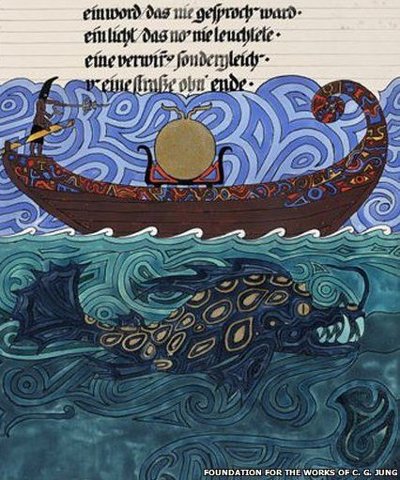 ein word/das nie gesproch‾ ward·
ein licht/das no‾ nie leuchtete·
eine verwirr‾ sondergleich‾·
u‾ eine straße ohn‾ ende·
FOUNDATION FOR THE WORKS OF C. G. JUNG